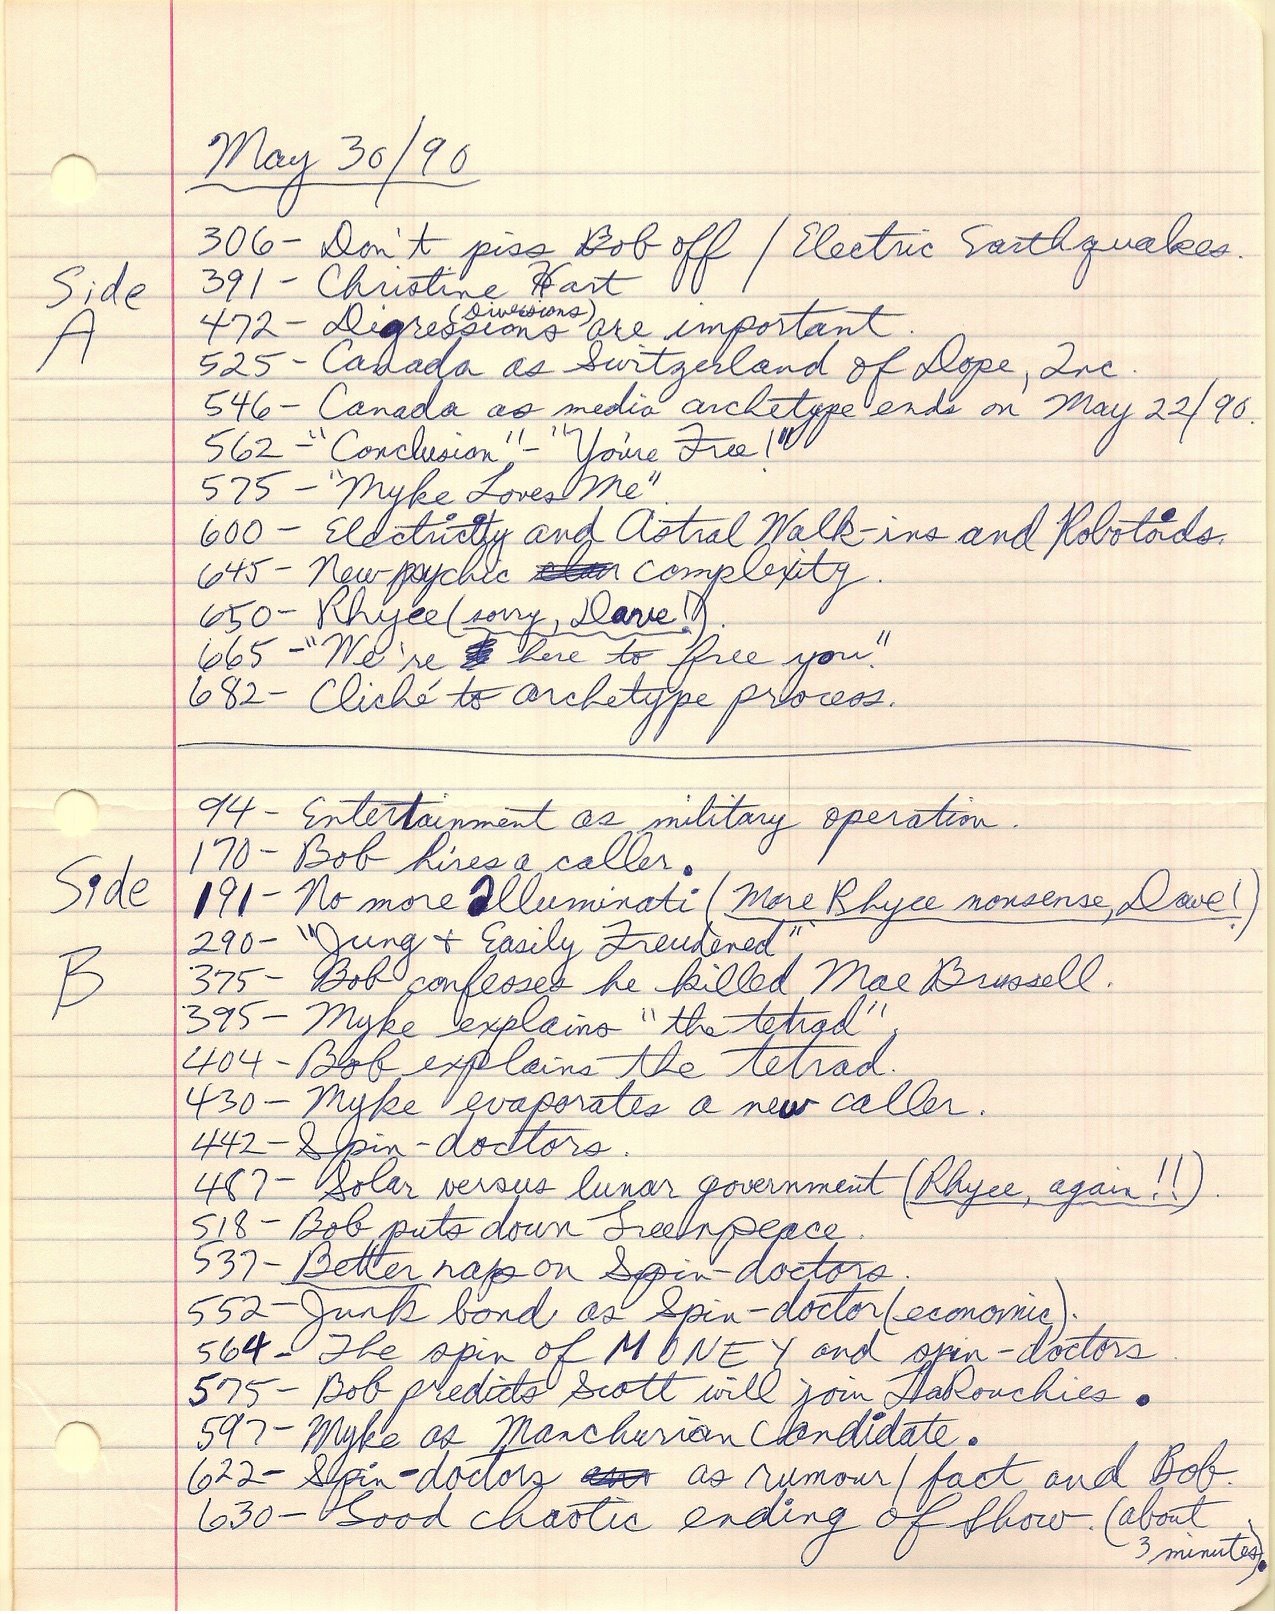 May 30/90
306- Don't piss Bob off / Electric Earthquakes.
Side A
391- Christine Hart
(Diversions)
472- Digressions are important.
525- Canada as Switzerland of Dope, Inc.
546- Canada as media archetype ends on May 22/90.
562-"Conclusion"-"You're Free!"
575-"Myke Loves Me".
600- Electricity and Astral Walk-ins and Robotoids.
645- New psychic complexity.
650- Rhyee (sorry, Dave!).
665-"We're here to free you".
682- Cliché to archetype process.
94- Entertainment as military operation.
170- Bob hires a caller.
Side B
191- No more Illuminati (More Rhyee nonsense, Dave!)
290- "Jung & Easily Freudened"
375- Bob confesses he killed Mae Brussell.
395- Myke explains "the tetrad".
404- Bob explains the tetrad.
430- Myke evaporates a new caller.
442- Spin-doctors.
487- Solar versus lunar government (Rhyee, again!!).
518- Bob puts down Greenpeace.
537- Better rap on Spin-doctors.
552- Junk bond as Spin-doctor (economic).
564- The spin of MONEY and spin-doctors.
575- Bob predicts Scott will join LaRouchies.
597- Myke as Manchurian Candidate.
622- Spin-doctors as rumour/fact and Bob.
630- Good chaotic ending of show. (about
3 minutes).